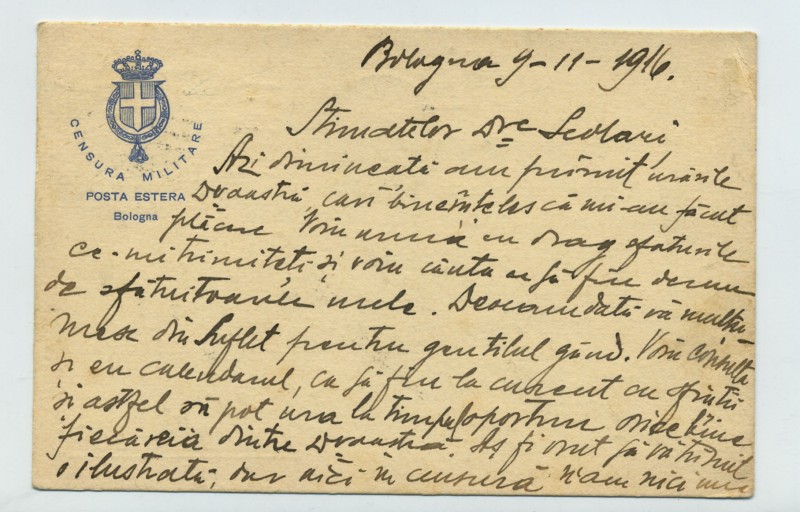 Bologna 9-11-1916.
CENSURA MILITARE
POSTA ESTERA
Bologna
Stimatelor Dre Scolari
Azi dimineață am primit urările
Dvoastră, cari bineînțeles că mi-au făcut
plăcere. Voiu urma cu drag sfaturile
ce-mi trimiteți și voiu căuta ca să fiu demn
de sfătuitoarele mele. Deocamdată vă mulțu
mesc din suflet pentru gentilul gând. Voiu consulta
și eu calendarul, ca să fiu la curent cu sfinții
și astfel să pot ura la timpul oportun orice bine
fiecăreia dintre Dvoastră. Aș fi vrut să vă trimit
o ilustrată, dar aici în censură n'am nici